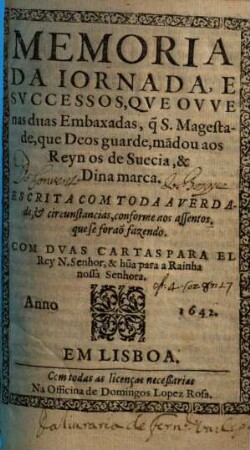 MEMORIA
DA IORNADA, E
SVCCESSOS, QVE OVVE
nas duas Embaxadas, q̃ S. Magesta-
de, que Deos guarde, mãdou aos
Reynos de Suecia, &
Dinamarca.
ESCRITA COM TODA A VERDA-
de, & circunstancias, conforme aos assentos,
que se foraõ fazendo.
COM DVAS CARTAS PARA EL
Rey N. Senhor, & hũa para a Rainha
nossa Senhora.
Anno 1642.
EM LISBOA.
Com todas as licenças necessarias
Na Officina de Domingos Lopez Rosa.